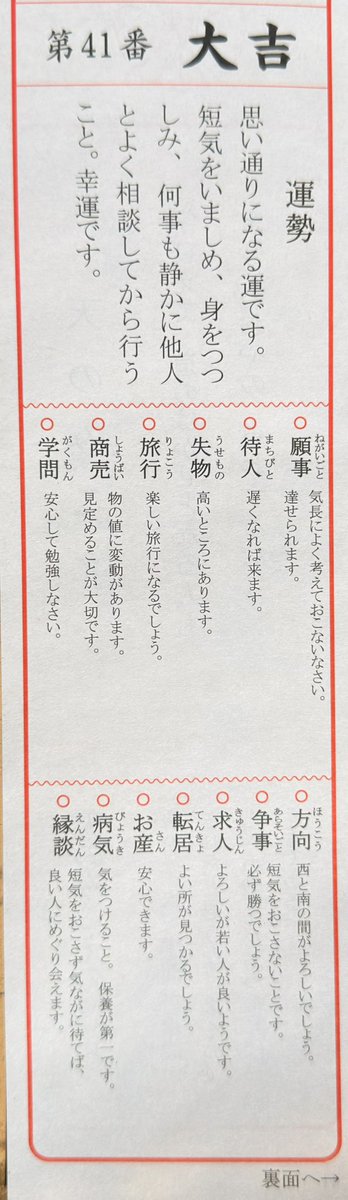 第41番 大吉
運勢
思い通りになる運です。
短気をいましめ、身をつつ
しみ、何事も静かに他人
とよく相談してから行う
こと。幸運です。
○願事 ねがいごと
気長によく考えておこないなさい。
達せられます。
○待人 まちびと
遅くなれば来ます。
○失物 うせもの
高いところにあります。
○旅行 りょこう
楽しい旅行になるでしょう。
○商売 しょうばい
物の値に変動があります。
見定めることが大切です。
○学問 がくもん
安心して勉強しなさい。
○方向 ほうこう
西と南の間がよろしいでしょう。
○争事 あらそいごと
短気をおこさないことです。
必ず勝つでしょう。
○求人 きゅうじん
よろしいが若い人が良いようです。
○転居 てんきょ
よい所が見つかるでしょう。
○お産 さん
安心できます。
○病気 びょうき
気をつけること。保養が第一です。
○縁談 えんだん
短気をおこさず気ながに待てば、
良い人にめぐり会えます。
裏面へ→